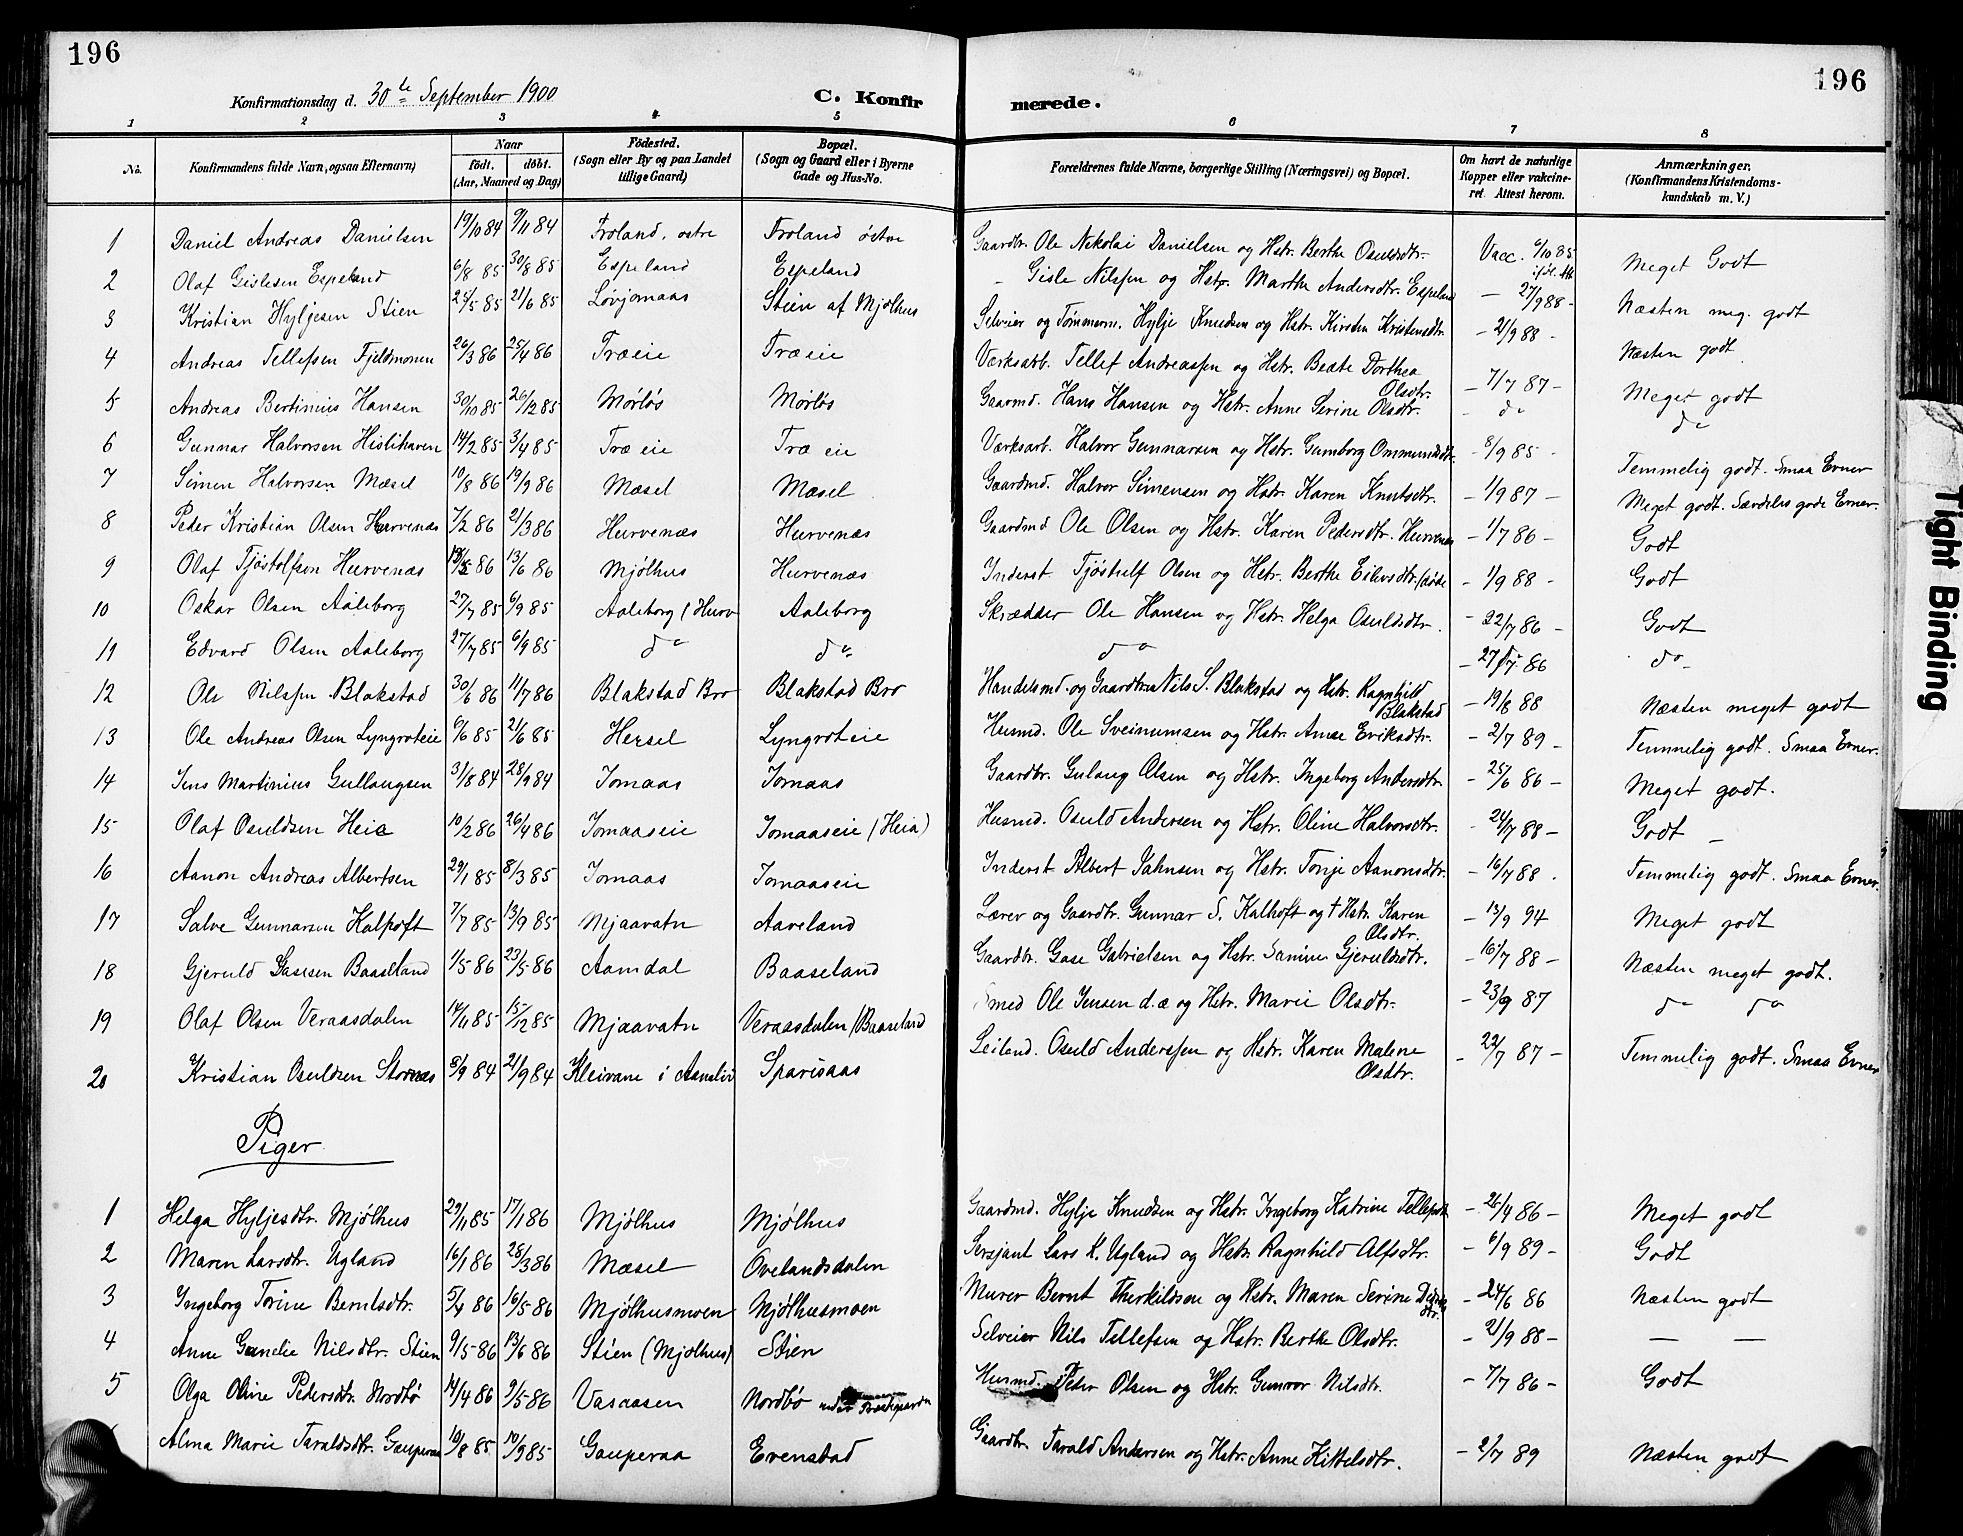 196
196
Konfirmationsdag d. 30te September 1900
C. Konfirmerede.
1 2 3 4 5 6 7 8
No. Konfirmandens fulde Navn, ogsaa Efternavn) Naar født. døbt. (Aar, Maaned og Dag) Fødested. (Sogn eller By og paa Landet tillige Gaard) Bopæl. (Sogn og Gaard eller i Byerne Gade og Hus-No. Forældrenes fulde Navne, borgerlige Stilling (Næringsvei) og Bopæl. Om havt de naturlige Kopper eller vakcineret. Attest herom. Anmærkninger. (Konfirmandens Kristendomskundskab m. V.)
1 Daniel Andreas Danielsen 19/10 84 9/11 84 Froland, østre Froland østre Gaardbr. Ole Nikolai Danielsen og Hstr. Berthe Osuldsdtr. Vacc. 6/10 85 Meget Godt
2 Olaf Gislesen Espeland 6/8 85 30/8 85 Espeland Espeland - Gisle Nilssen og Hstr. Marthe Andersdtr. Espeland - 27/9 88 - Næsten meg. godt
3 Kristian Hyljesen Stien 25/5 85 21/6 85 Løvjomaas Stien af Mjølhus Selveier og Tømmerm. Hylje Knudsen og Hstr. Kirsten Kristensdtr. - 2/9 88 - Næsten godt
4 Andreas Tellefsen Fjeldmonen 26/3 86 25/4 86 Træeie Træeie Værksarb. Tellef Andreassen og Hstr. Beate Dorthea Olsdtr. - 7/7 87 - Meget godt
5 Andreas Bertinius Hansen 30/10 85 26/12 85 Mørløs Mørløs Gaarmd. Hans Hansen og Hstr. Anne Serine Olsdtr. - do do
6 Gunnar Halvorsen Hislihaven 14/2 85 3/4 85 Træ eie Træ eie Værksarb. Halvor Gunnarsen og Hstr. Gumborg Ommundsdtr. - 8/9 85 - Temmelig godt. Smaa Evner
7 Simen Halvorsen Mæsel 10/8 86 19/9 86 Mæsel Mæsel Gaardmd. Halvor Simensen og Hstr. Karen Knutsdtr. - 1/9 87 - Meget godt. Særdeles gode Evner.
8 Peder Kristian Olsen Hurvenæs 7/2 86 21/3 86 Hurvenæs Hurvenæs Gaardmd Ole Olsen og Hstr. Karen Pedersdtr. Hurvenæs - 1/7 86 - Godt
9 Olaf Tjøstolfsen Hurvenæs /5 86 13/6 86 Mjølhus Hurvenæs Inderst. Tjøstulf Olsen og Hstr. Berthe Eilevsdtr. - 1/9 88 - Godt
10 Oskar Olsen Aaleborg 27/7 85 6/9 85 Aaleborg (Hurv Aaleborg Skrædder Ole Hansen og Hstr. Helga Osuldsdtr. - 22/7 86 - Godt
11 Edvard Olsen Aaleborg 27/7 85 6/9 85 do do do - 27/7 86 do
12 Ole Nilssen Blakstad 30/6 86 11/7 86 Blakstad Bro Blakstad Bro Handelsmd. og Gaardbr. Nils S. Blakstad og Hstr. Ragnhild Blakstad - 19/8 88 Næsten meget godt
13 Ole Andreas Olsen Lyngroteie 6/6 85 21/6 85 Hersel Lyngroteie Husmd. Ole Sveinumsen og Hstr. Anne Eriksdtr. - 2/7 89 - Temmelig godt. Smaa Evner.
14 Jens Martinius Gullaugsen 31/8 84 28/9 84 Jomaas Jomaas Gaardbr. Gulaug Olsen og Hstr. Ingeborg Andersdtr. - 25/6 86 - Meget godt.
15 Olaf Osuldsen Heia 10/2 86 26/4 86 Jomaaseie Jomaaseie (Heia) Husmd. Osuld Andersen og Hstr. Oline Halvorsdtr. - 24/7 88 - Godt
16 Aanon Andreas Albertsen 29/1 85 8/3 85 Jomaas Jomaaseie Inderst Albert Jahnsen og Hstr. Tonje Aanonsdtr. - 16/7 88. Temmelig godt. Smaa Evner.
17 Salve Gunnarsen Kalhoft 7/7 85 13/9 85 Mjaavatn Aaveland Lærer og Gaardbr. Gunnar S. Kalhoft og † Hstr. Karen Olsdtr. - 13/9 94 Meget godt
18 Gjeruld Gasesen Baaseland 1/5 86 23/5 86 Aamdal Baaseland Gaardbr. Gase Gabrielsen og Hstr. Samine Gjeruldsdtr. - 16/7 88 - Næsten meget godt.
19 Olaf Olsen Veraasdalen 14/11 85 15/12 85 Mjaavatn Veraasdalen (Baaseland Smed Ole Jensen d.æ og Hstr. Marie Olsdtr. - 23/9 87 do do
20 Kristian Osuldsen Stornæs 8/9 84 21/9 84 Kleivane i Aamlid Sparisaas Leiland. Osuld Anderssen og Hstr. Karen Malene Olsdtr. - 22/7 87 - Temmelig godt. Smaa Evner
Piger
1 Helga Hyljesdtr. Mjølhus 29/11 85 17/1 86 Mjølhus Mjølhus Gaardmd. Hylje Knudsen og Hstr. Ingeborg Katrine Tellefsdtr. - 26/4 86 - Meget godt
2 Maren Larsdtr. Ugland 16/1 86 28/3 86 Mæsel Ovelandsdalen Sersjant Lars K. Ugland og Hstr. Ragnhild Alfsdtr. - 6/9 89 - Godt
3 Ingeborg Torine Berntsdtr. 5/4 86 16/5 86 Mjølhusmoen Mjølhusmoen Murer Bernt Therkildsen og Hstr. Maren Serine - 24/6 86 Næsten godt
4 Anne Gunelie Nilsdtr. Stien 9/5 86 13/6 86 Stien (Mjølhus) Stien Selveier Nils Tellefsen og Hstr. Berthe Olsdtr. - 21/9 88 - — —
5 Olga Oline Pedersdtr. Nordbø 14/4 86 9/5 86 Vasaasen Nordbø under Præstegaarden Husmd. Peder Olsen og Hstr. Gunvor Nilsdtr. - 7/7 86 - Godt
Alma Marie Taraldsdtr. Gauperaa 10/8 85 10/9 85 Gauperaa Evenstad Gaardbr. Tarald Andersen og Hstr. Anne Kittelsdtr. - 2/7 89 Næsten godt
Tight Binding